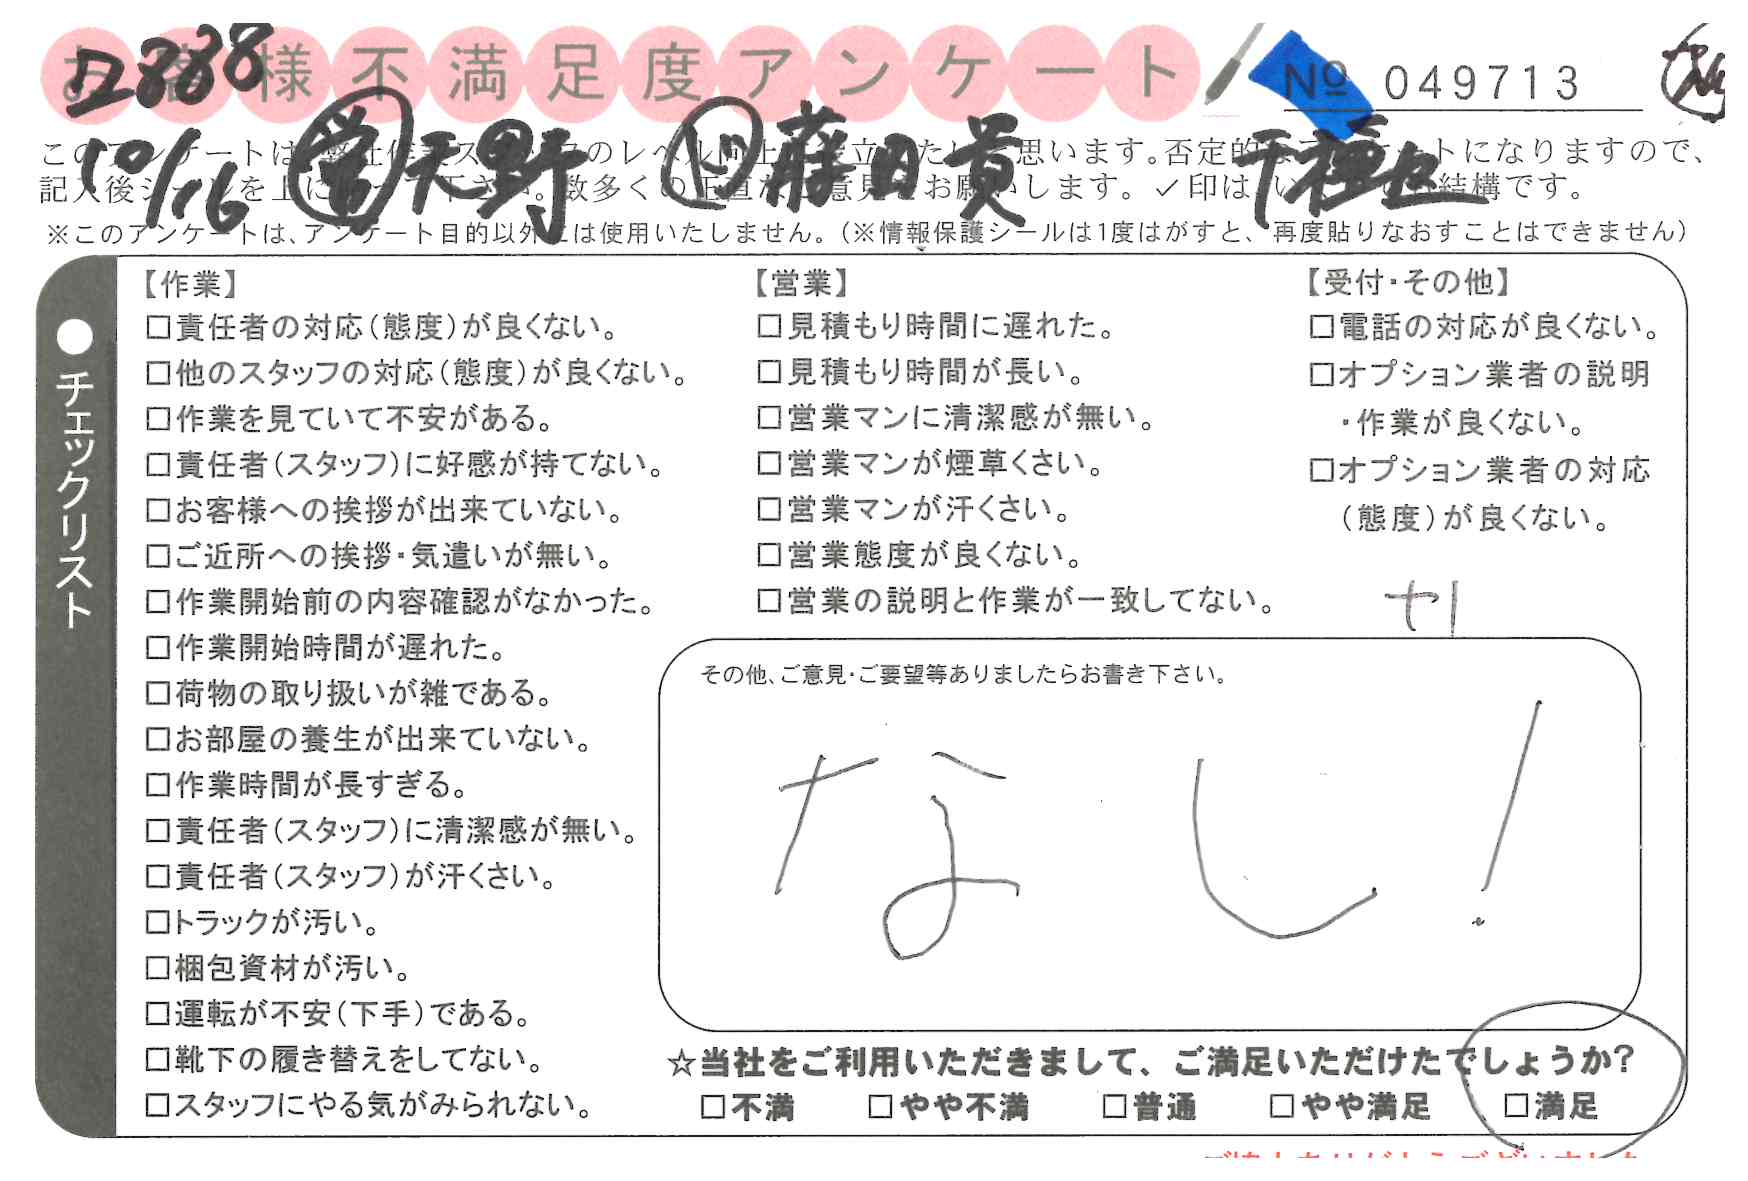 お客様不満足度アンケート
№ 049713
10/16 営 天野 ド 藤田 貴
このアンケートは、弊社作業スタッフのレベル向上に役立てたいと思います。否定的なアンケートになりますので、
記入後シールを上に貼って下さい。数多くの正直なご意見をお願いします。✓印はいくつでも結構です。
※このアンケートは、アンケート目的以外には使用いたしません。(※情報保護シールは1度はがすと、再度貼りなおすことはできません)
●チェックリスト
【作業】
□責任者の対応(態度)が良くない。
□他のスタッフの対応(態度)が良くない。
□作業を見ていて不安がある。
□責任者(スタッフ)に好感が持てない。
□お客様への挨拶が出来ていない。
□ご近所への挨拶・気遣いが無い。
□作業開始前の内容確認がなかった。
□作業開始時間が遅れた。
□荷物の取り扱いが雑である。
□お部屋の養生が出来ていない。
□作業時間が長すぎる。
□責任者(スタッフ)に清潔感が無い。
□責任者(スタッフ)が汗くさい。
□トラックが汚い。
□梱包資材が汚い。
□運転が不安(下手)である。
□靴下の履き替えをしてない。
□スタッフにやる気がみられない。
【営業】
□見積もり時間に遅れた。
□見積もり時間が長い。
□営業マンに清潔感が無い。
□営業マンが煙草くさい。
□営業マンが汗くさい。
□営業態度が良くない。
□営業の説明と作業が一致してない。
【受付・その他】
□電話の対応が良くない。
□オプション業者の説明
・作業が良くない。
□オプション業者の対応
(態度)が良くない。
その他、ご意見・ご要望等ありましたらお書き下さい。
なし!
☆当社をご利用いただきまして、ご満足いただけたでしょうか?
□不満 □やや不満 □普通 □やや満足 □満足